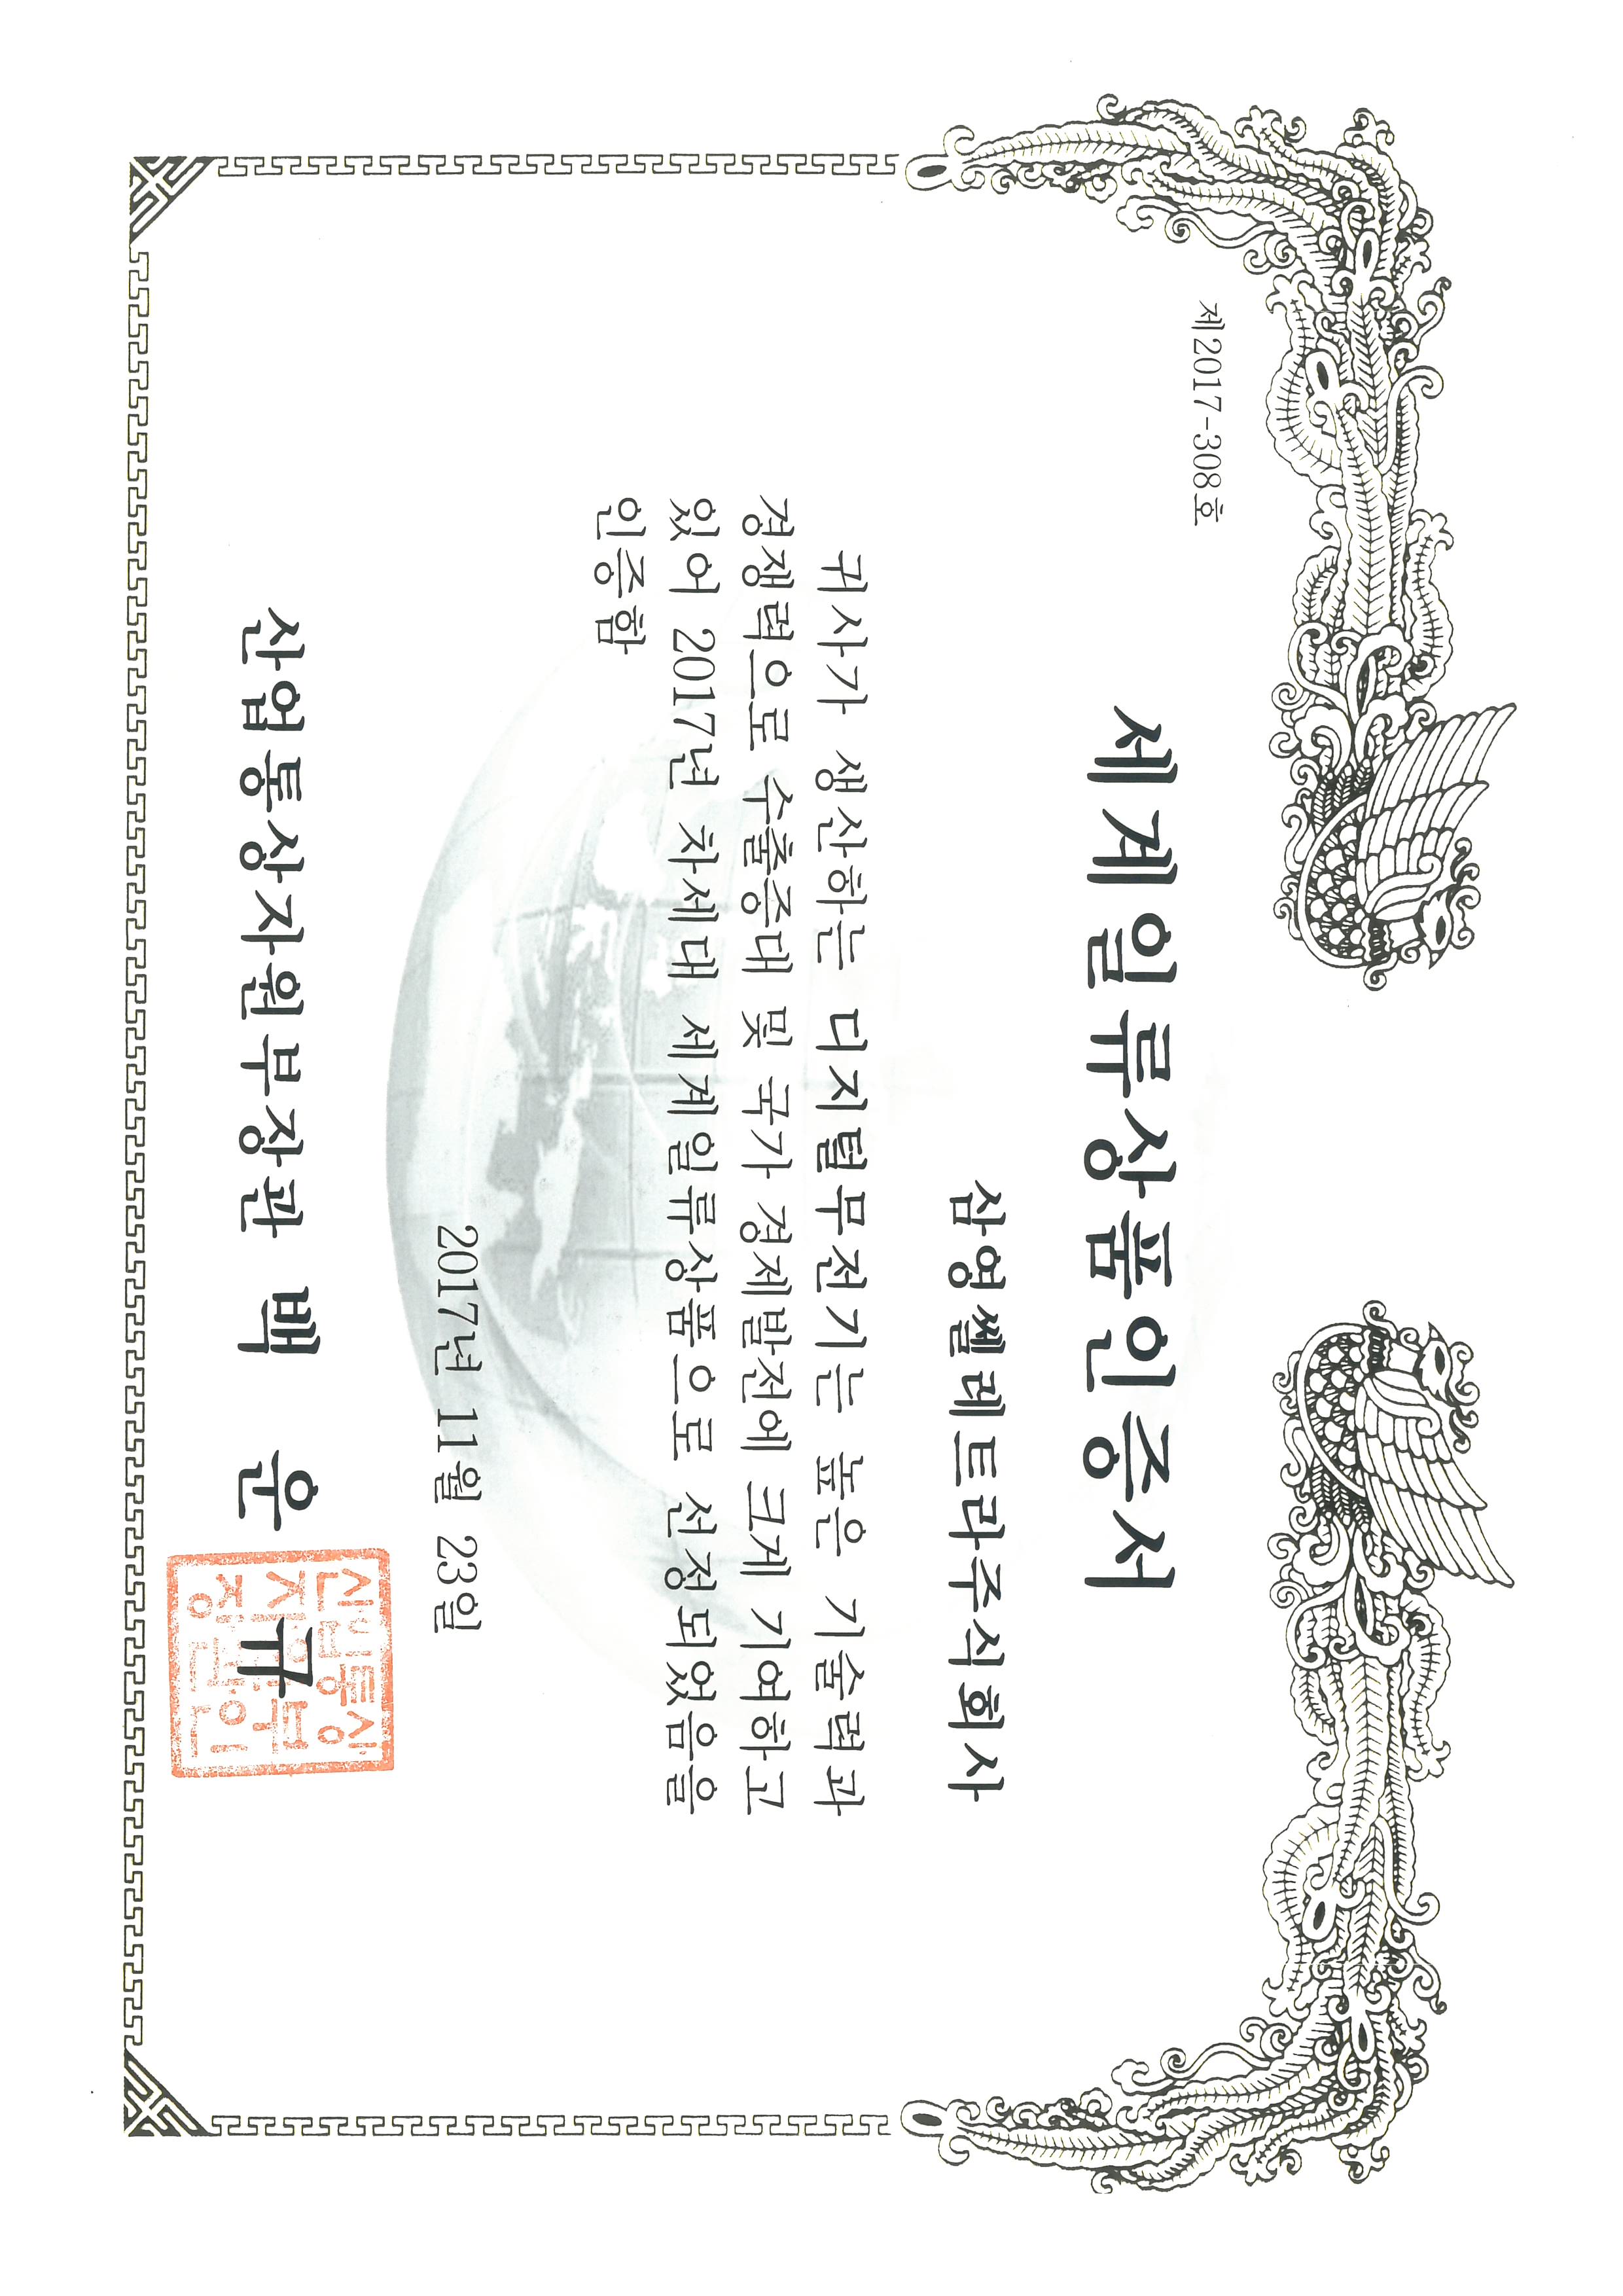 제2017-308호
세계일류상품인증서
삼영쎌레트라주식회사
귀사가 생산하는 디지털무전기는 높은 기술력과
경쟁력으로 수출증대 및 국가 경제발전에 크게 기여하고
있어 2017년 차세대 세계일류상품으로 선정되었음을
인증함
2017년 11월 23일
산업통상자원부장관 백 운 규
산업통상
자원부
장관인